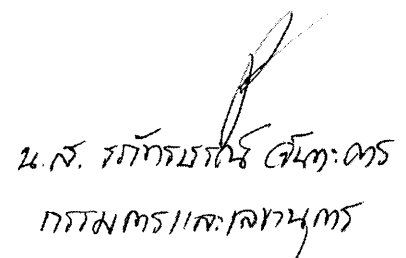 น.ส. รภัทรบรรณ์ จันทะคาร
กรรมการและเลขานุการ